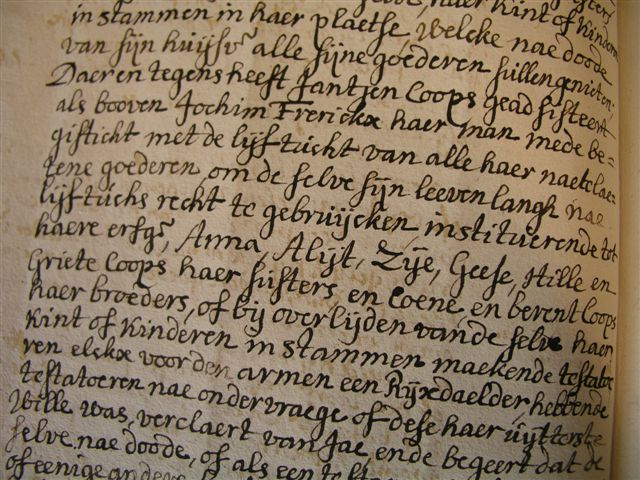 haer Kint of Kinderen
in stammen in haer plaetse, welcke nae doode
van sijn huijsvr alle sijne goederen sullen genieten,
Daer en tegens heeft Jantjen Coops geadsisteert
als booven Jochim Frerickx haer man mede be=
gifticht met de lijftucht van alle haer naetelae=
tene goederen, om de selve sijn leeven langh nae
lijftuchs recht te gebruijcken, instituerende tot
haere erfgr, Anna, Alijt, Zije, Geese, Hille en
Griete Coops haer susters, en Coene en berent Coops
haer broeders, of bij overlijden van de selve haer
Kint of Kinderen in stammen maekende testatoe
ren elckx voor den armen een Rijxdaelder, hebbende
testatoeren nae ondervraege of dese haer uijtterste
wille was, verclaert van Jae, ende begeert dat de
selve nae doode, of als een
of eenige